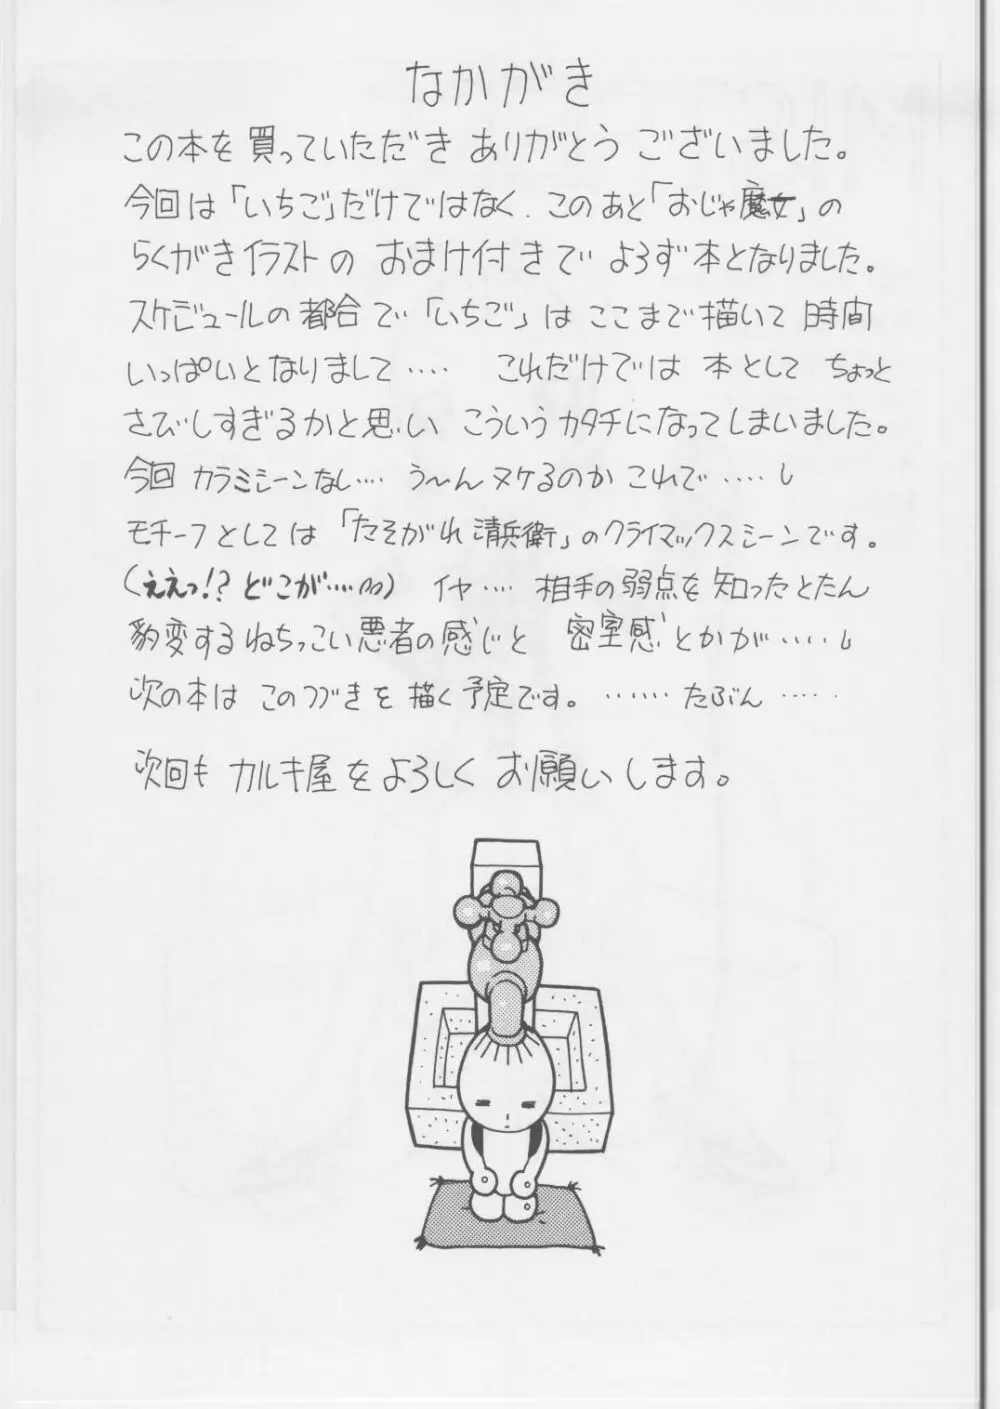 なかがき
この本を買っていただき ありがとう ございました。
今回は「いちご」だけではなく、このあと「おじゃ魔女」の
らくがきイラストの おまけ付きで よろず本となりました。
スケジュールの都合で「いちご」は ここまで描いて 時間
いっぱいとなりまして‥‥ これだけでは 本として ちょっと
さびしすぎるかと思い こういうカタチになってしまいました。
今回 カラミシーンなし‥‥ う〜んヌケるのか これで‥‥‥
モチーフとしては「たそがれ清兵衛」のクライマックスシーンです。
(ええっ!? どこが‥‥‥) イヤ‥‥ 相手の弱点を知ったとたん
豹変するねちっこい悪者の感じと 密室感とかが‥‥‥
次の本は このつづきを描く予定です。‥‥‥ たぶん ‥‥‥
次回も カルキ屋をよろしく お願いします。